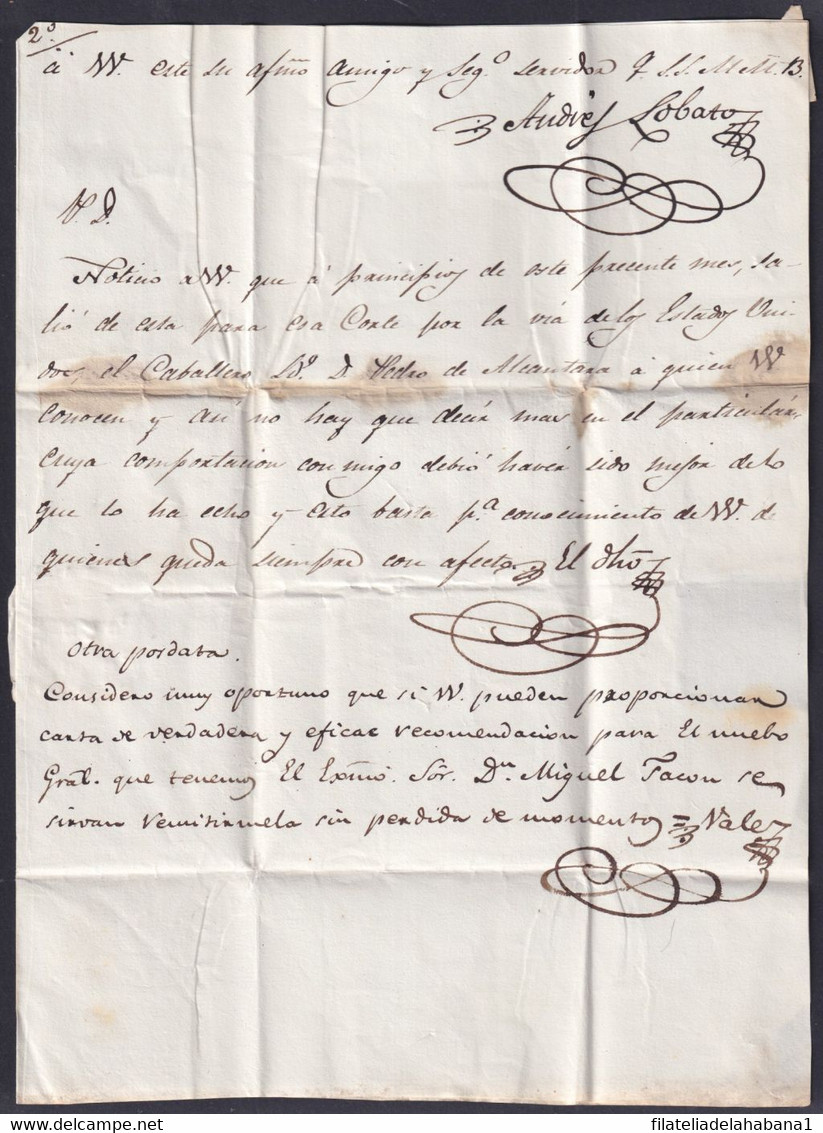 2º
à W. este su afmo amigo y seg.º servidor Q. S. S. M. M. B.
Andrés Lobato
P. D.
Noticio a W. que à principios de este precente mes, sa-
lió de esta para esa Corte por la via de los Estados Uni-
dos, el Caballero D. Pedro de Alcantara à quien W
conocen y asi no hay que decir mas en el particular,
cuya comportacion conmigo debió haver sido mejor delo
que lo ha echo y esto basta p.ª conocimiento de W. de
quienes queda siempre con afecto El dho
Otra posdata.
Considero muy oportuno que si W. pueden proporcionar
carta de verdadera y eficas recomendacion para El nuebo
Gral. que tenemos El Exmo. Sor. Dn Miguel Tacon se
sirvan remitirmela sin perdida de momento = Vale
filateliadelahabana1